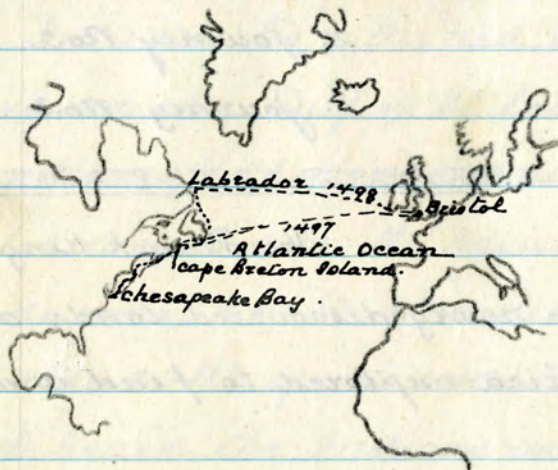 Labrador 1498
Bristol
1497
Atlantic Ocean
cape Breton Island.
chesapeake Bay.